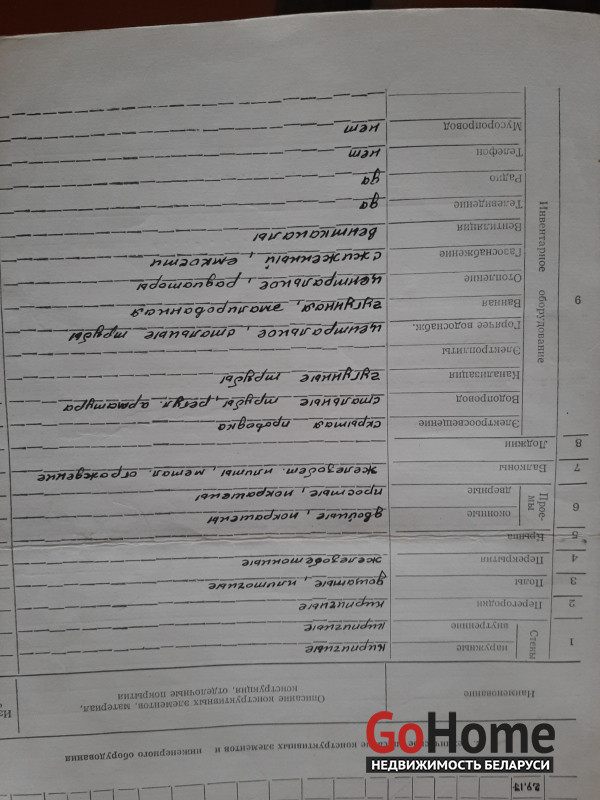 2.9.17
конструктивных элементов и инженерного оборудования
Наименование
Описание конструктивных элементов, материал,
конструкция, отделочные покрытия
Из
1 Стены наружные кирпичные
внутренние кирпичные
2 Перегородки кирпичные
3 Полы дощатые, плиточные
4 Перекрытия железобетонные
5 Крыша
6 Прое-мы оконные двойные, покрашены
дверные простые, покрашены
7 Балконы железобет. плиты, метал. ограждение
8 Лоджии
9 Инвентарное оборудование
Электроосвещение скрытая проводка
Водопровод стальные трубы, регул. арматура
Канализация чугунные трубы
Электроплиты
Горячее водоснабж. центральное, стальные трубы
Ванная чугунная, эмалированная
Отопление центральное, радиаторы
Газоснабжение сжиженный, емкости
Вентиляция вентканалы
Телевидение да
Радио да
Телефон нет
Мусоропровод нет
GoHome
НЕДВИЖИМОСТЬ БЕЛАРУСИ